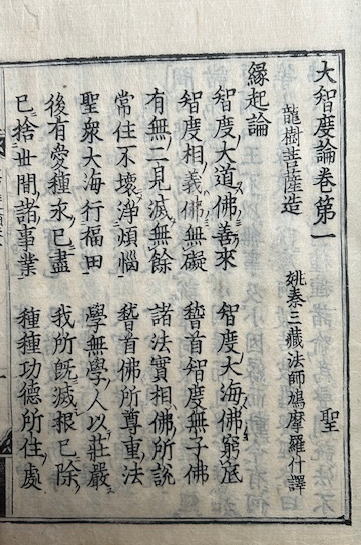 大智度論卷第一 聖
龍樹菩薩造 姚秦三藏法師鳩摩羅什譯
緣起論
智度大道佛善來 智度大海佛窮底
智度相義佛無礙 稽首智度無子佛
有無二見滅無餘 諸法實相佛所說
常住不壞淨煩惱 稽首佛所尊重法
聖衆大海行福田 學無學人以莊嚴
後有愛種永已盡 我所旣滅根已除
已捨世間諸事業 種種功德所住處